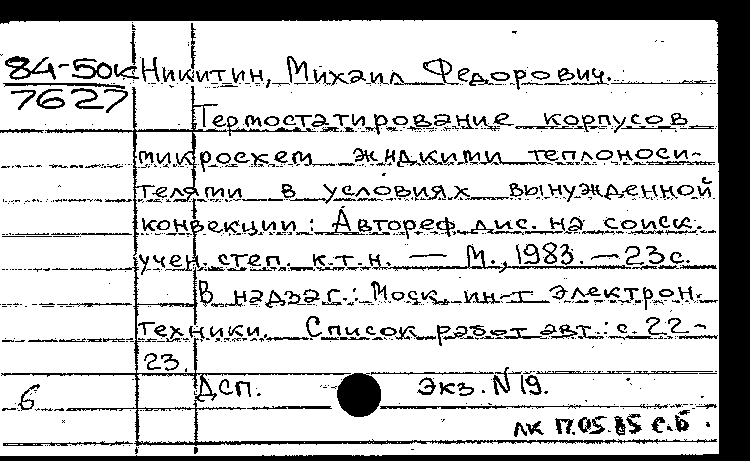 84-50к Никитин, Михаил Федорович.
7627
Термостатирование корпусов
микросхем жидкими теплоноси-
телями в условиях вынужденной
конвекции: Автореф. дис. на соиск.
учен. степ. к.т.н. — М., 1983. — 23 с.
В надзаг.: Моск. ин-т электрон.
техники. Список работ авт.: с. 22-
23.
6 ДСП. Экз. N 19.
ЛК 17.05.85 С.Б.